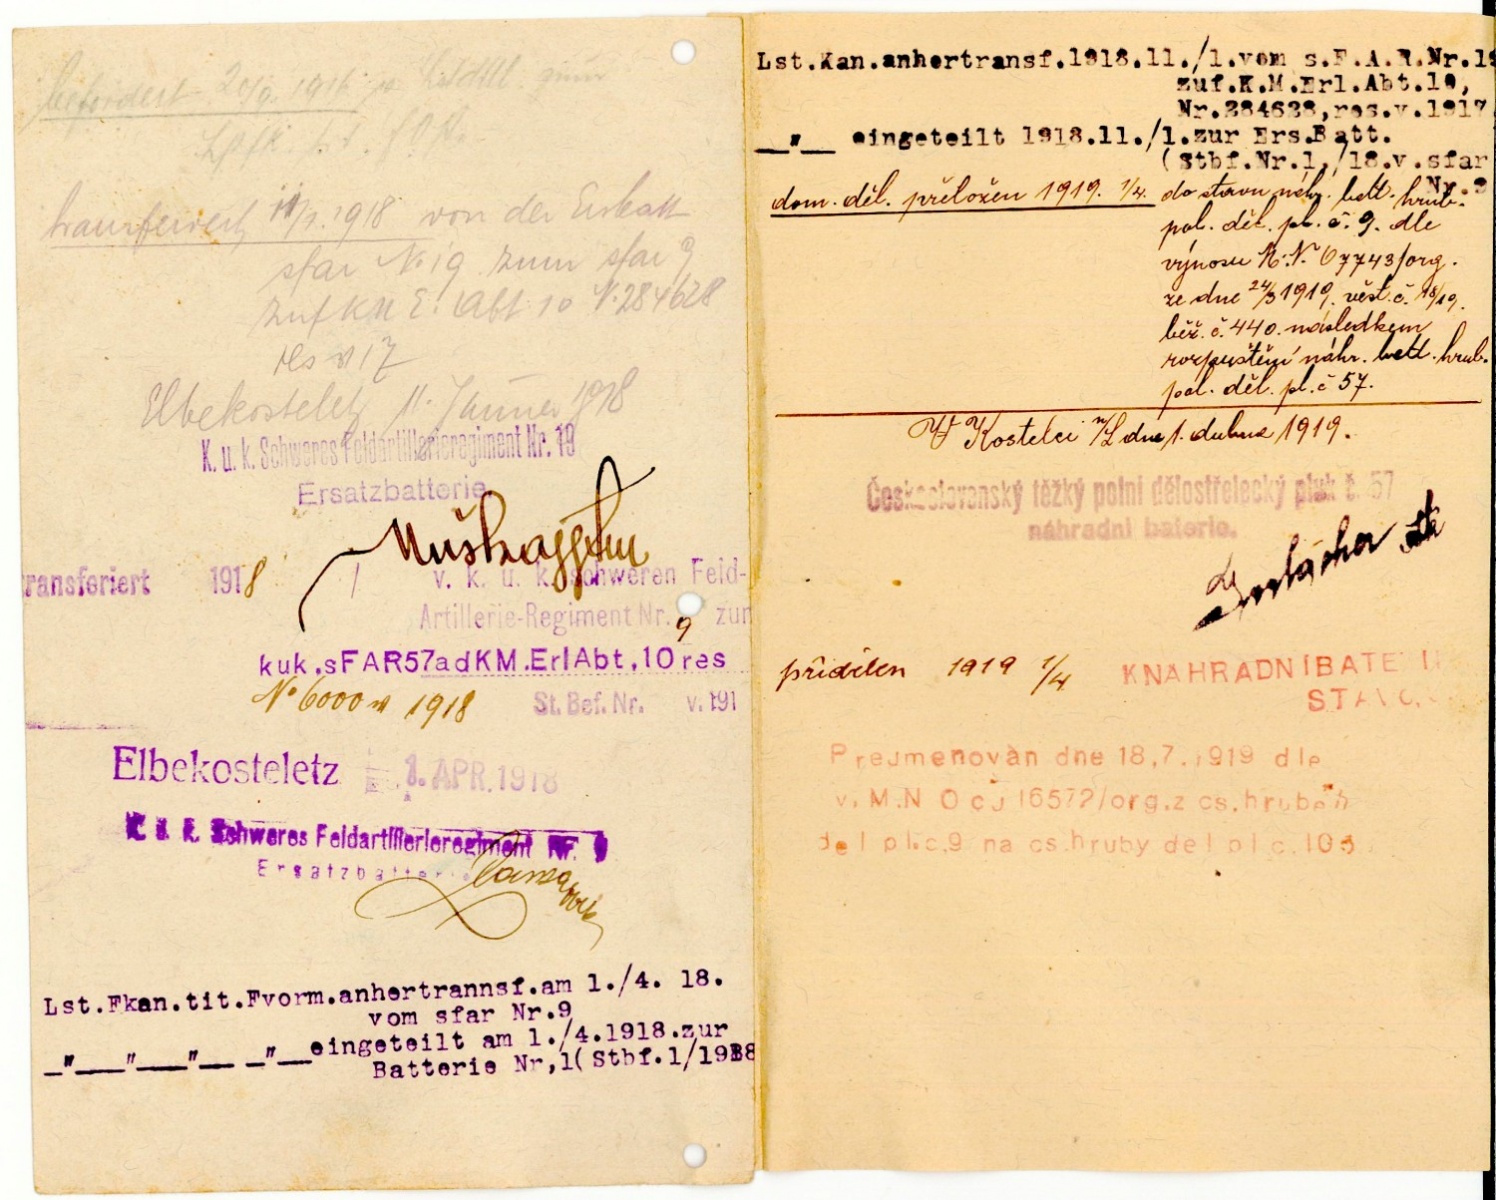 befördert 20/9. 1916
transferiert 11/1. 1918 von der Ersbatt
sfar N: 19 zum sfar 9
zuf KM E. Abt 10 N: 284628
res v 17
Elbekosteletz 11. Jänner 1918
K. u. k. Schweres Feldartillerieregiment Nr. 19
Ersatzbatterie.
transferiert 1918 v. k. u. k. schweren Feld-
Artillerie-Regiment Nr. 9 zum
kuk.sFAR57adKM.ErlAbt,10res
No 6000 v 1918 St. Bef. Nr. v. 191
Elbekosteletz 1. APR. 1918
K. u. k. Schweres Feldartillerieregiment Nr. 9
Ersatzbatterie
Lst.Fkan.tit.Fvorm.anhertrannsf.am 1./4. 18.
vom sfar Nr.9
_"___"___"__ _"__eingeteilt am 1./4.1918.zur
Batterie Nr,1(Stbf.1/1918
Lst.Kan.anhertransf.1918.11./1.vom s.F.A.R.Nr.19
zuf.K.M.Erl.Abt.10,
Nr.284628,res.v.1917
__"__ eingeteilt 1918.11./1.zur Ers.Batt.
(Stbf.Nr.1,/18.v.sfar
Nr.9
dom. děl. přeložen 1919. 1/4. do stavu náhr. batt. hrub.
pol. děl. pl. č. 9. dle
výnosu M.N. 07743/org.
ze dne 24/3 1919. věst. č. 18/19.
běž. č. 440. následkem
rozpuštění náhr. batt. hrub.
pol. děl. pl. č 57.
V Kostelci n/L dne 1. dubna 1919.
Československý těžký polní dělostřelecký pluk č. 57
náhradní baterie.
přidělen 1919 1/4 KNAHRADNÍBATE
Prejmenován dne 18.7.1919 dle
v. M.N 0 čj 16572/org.z cs.hrubeh
del pl.c.9 na cs.hruby del pl c.109